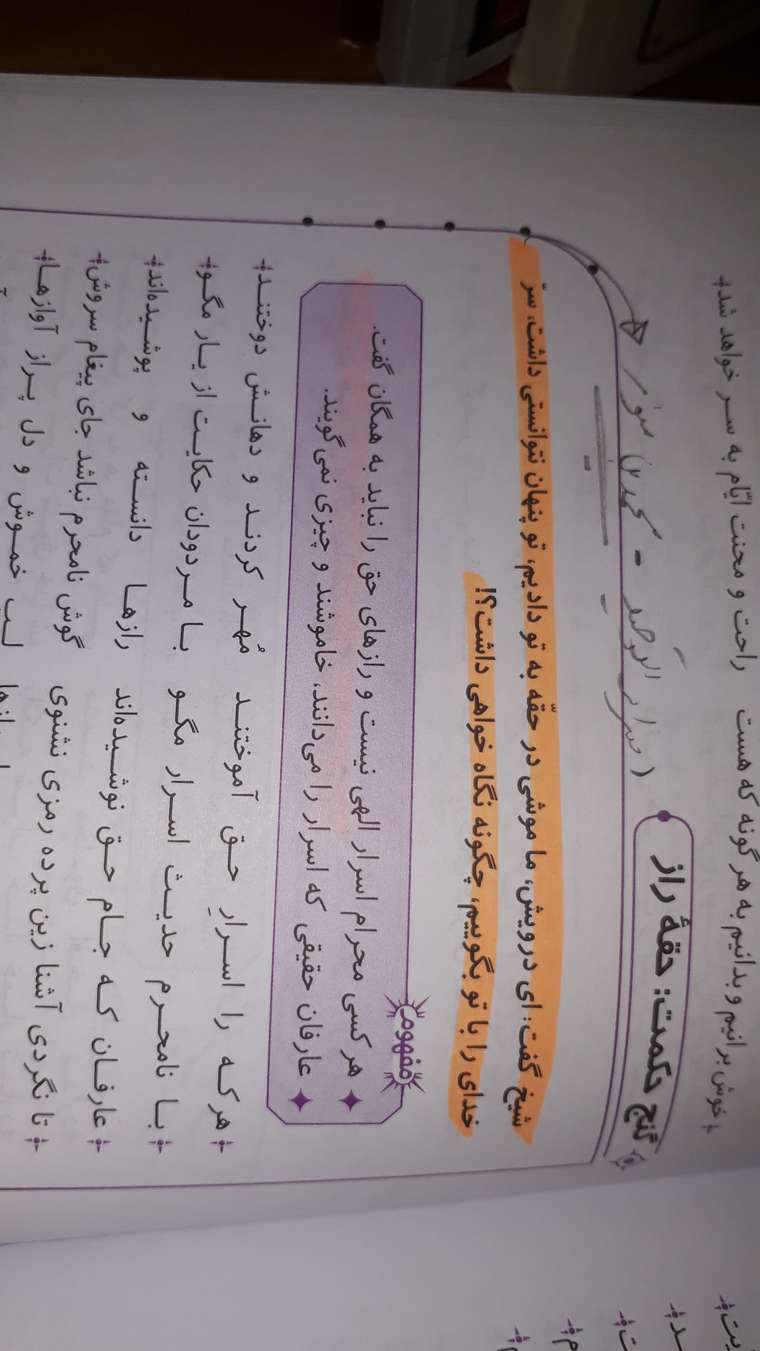 خوش برانیم و بدانیم به هر گونه که هست راحت و محنت ایّام به سر خواهد شد
گنج حکمت: حقهٔ راز
(اسرار التوحید - محمدبن منور
شیخ گفت: ای درویش، ما موشی در حقّه به تو دادیم، تو پنهان نتوانستی داشت، سرّ
خدای را با تو بگوییم، چگونه نگاه خواهی داشت؟!
مفهوم
هر کسی محرام اسرار الهی نیست و رازهای حق را نباید به همگان گفت.
عارفان حقیقی که اسرار را می‌دانند، خاموشند و چیزی نمی‌گویند.
هرکه را اسرارِ حق آموختند مُهر کردند و دهانش دوختند
با نامحرم حدیث اسرار مگو با مردودان حکایت از یار مگو
عارفان که جام حق نوشیده‌اند رازها دانسته و پوشیده‌اند
تا نگردی آشنا زین پرده رمزی نشنوی گوش نامحرم نباشد جای پیغام سروش
لب خموش و دل پراز آوازها